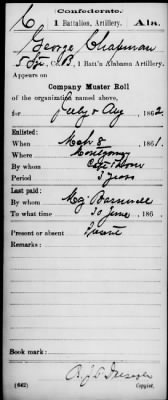 Confederate.
C 1 Battalion, Artillery. Ala.
George Chapman
5 Sgt., Co. B, 1 Batt'n Alabama Artillery.
Appears on
Company Muster Roll
of the organization named above,
for July & Aug, 1862.
Enlisted:
When Mch 8, 1861.
Where Montgomery
By whom Capt
Period 3 years
Last paid:
By whom Maj Barnwell
To what time 30 June, 186
Present or absent Present
Remarks:
Book mark:
(642)
Copyist.